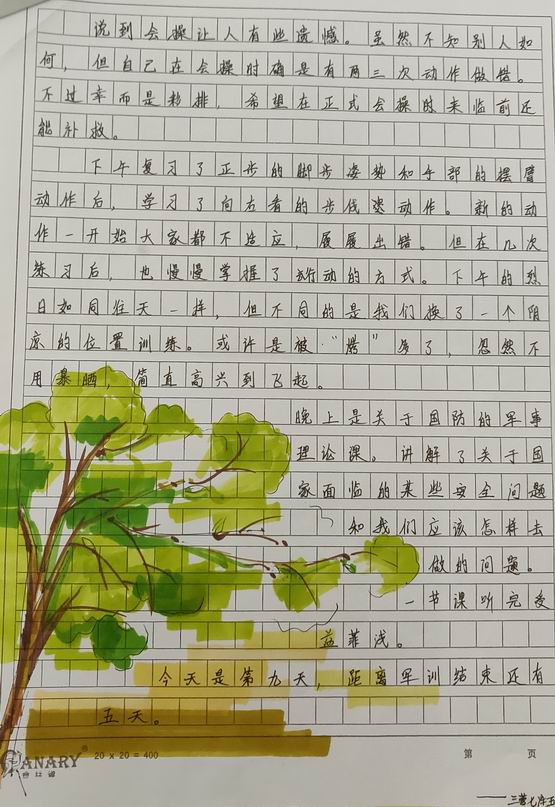 说到会操让人有些遗憾。虽然不知别人如
何，但自己在会操时确是有两三次动作做错。
不过幸而是彩排，希望在正式会操时来临前还
能补救。
下午复习了正步的脚步姿势和手部的摆臂
动作后，学习了向右看的步伐姿动作。新的动
作一开始大家都不适应，屡屡出错。但在几次
练习后，也慢慢掌握了行动的方式。下午的烈
日如同往天一样，但不同的是我们换了一个阴
凉的位置训练。或许是被“烤”多了，忽然不
用暴晒，简直高兴到飞起。
晚上是关于国防的军事
理论课。讲解了关于国
家面临的某些安全问题
和我们应该怎样去
做的问题。
一节课听完受
益菲浅。
今天是第九天，距离军训结束还有
五天。
CANARY® 20 x 20 = 400 第 页
——三营七连